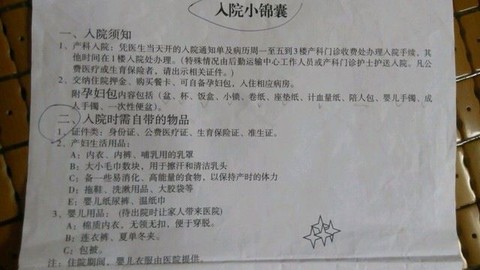 入院小锦囊
一、入院须知
1、产科入院：凭医生当天开的入院通知单及病历周一至五到3楼产科门诊收费处办理入院手续，其
他时间在1楼入院处办理。（特殊情况由后勤运输中心工作人员或产科门诊护士护送入院。凡公
费医疗或生育保险者，请出示相关证件。）
2、交纳住院押金、购买就餐卡，可自备孕妇包，入住相应病房。
附孕妇包内容包括（盆、杯、饭盒、小锁、卷纸、座垫纸、计血量纸、陪人包、婴儿手镯、成
人手镯、一次性便盆）。
二、入院时需自带的物品
1、证件类：身份证、公费医疗证、生育保险证、准生证。
2、产妇生活用品：
A：内衣、内裤、哺乳用的乳罩
B：大小毛巾数块，用于擦汗和清洁乳头
C：备一些易消化、高能量的食物，以保持产时的体力
D：拖鞋、洗漱用品、大胶袋等
E：婴儿纸尿裤、湿纸巾
3、婴儿用品：（待出院时让家人带来医院）
A：棉质内衣，无领无扣，便于穿脱。
B：连衣裤，夏单冬夹。
C：包被。
注：住院期间，婴儿衣服由医院提供。